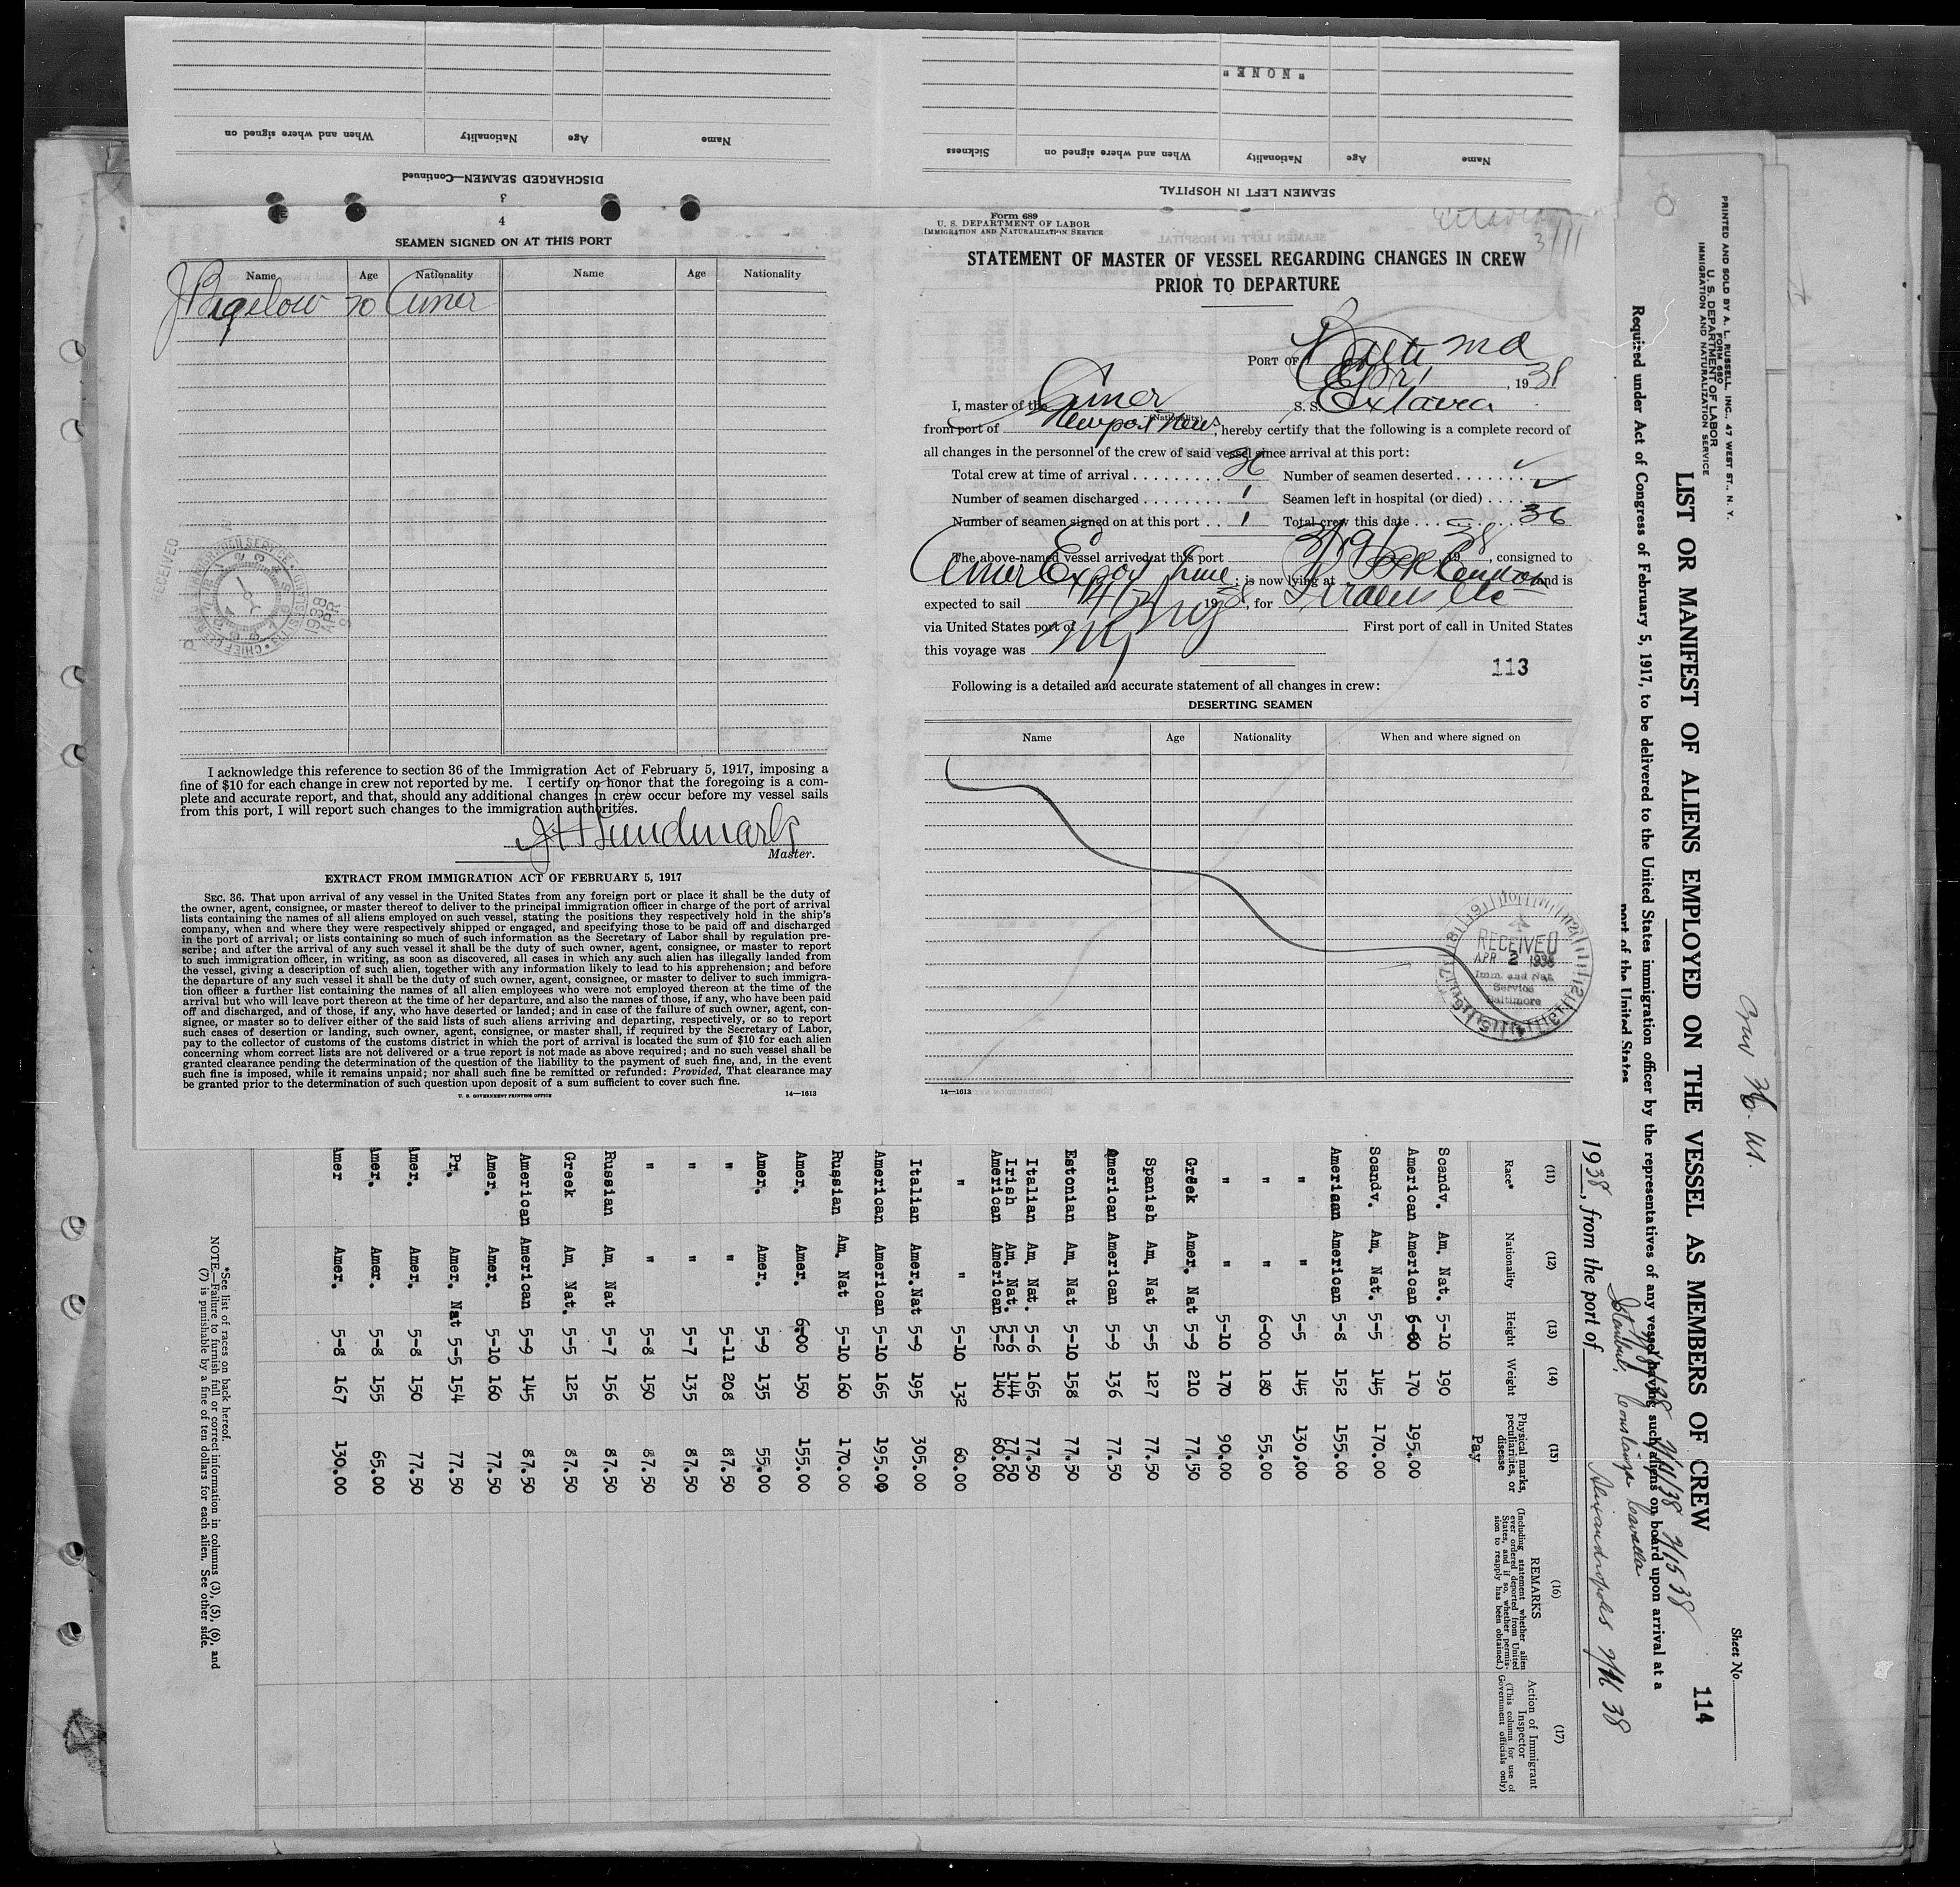 Name Age Nationality When and where signed on
DISCHARGED SEAMEN—Continued
3
"NONE"
Name Age Nationality When and where signed on Sickness
SEAMEN LEFT IN HOSPITAL
4
SEAMEN SIGNED ON AT THIS PORT
Name Age Nationality Name Age Nationality
J Bigelow 70 Amer
RECEIVED
1938 APR 9
I acknowledge this reference to section 36 of the Immigration Act of February 5, 1917, imposing a
fine of $10 for each change in crew not reported by me. I certify on honor that the foregoing is a com-
plete and accurate report, and that, should any additional changes in crew occur before my vessel sails
from this port, I will report such changes to the immigration authorities.
J H Lundmark
Master.
EXTRACT FROM IMMIGRATION ACT OF FEBRUARY 5, 1917
SEC. 36. That upon arrival of any vessel in the United States from any foreign port or place it shall be the duty of
the owner, agent, consignee, or master thereof to deliver to the principal immigration officer in charge of the port of arrival
lists containing the names of all aliens employed on such vessel, stating the positions they respectively hold in the ship's
company, when and where they were respectively shipped or engaged, and specifying those to be paid off and discharged
in the port of arrival; or lists containing so much of such information as the Secretary of Labor shall by regulation pre-
scribe; and after the arrival of any such vessel it shall be the duty of such owner, agent, consignee, or master to report
to such immigration officer, in writing, as soon as discovered, all cases in which any such alien has illegally landed from
the vessel, giving a description of such alien, together with any information likely to lead to his apprehension; and before
the departure of any such vessel it shall be the duty of such owner, agent, consignee, or master to deliver to such immigra-
tion officer a further list containing the names of all alien employees who were not employed thereon at the time of the
arrival but who will leave port thereon at the time of her departure, and also the names of those, if any, who have been paid
off and discharged, and of those, if any, who have deserted or landed; and in case of the failure of such owner, agent, con-
signee, or master so to deliver either of the said lists of such aliens arriving and departing, respectively, or so to report
such cases of desertion or landing, such owner, agent, consignee, or master shall, if required by the Secretary of Labor,
pay to the collector of customs of the customs district in which the port of arrival is located the sum of $10 for each alien
concerning whom correct lists are not delivered or a true report is not made as above required; and no such vessel shall be
granted clearance pending the determination of the question of the liability to the payment of such fine, and, in the event
such fine is imposed, while it remains unpaid; nor shall such fine be remitted or refunded: Provided, That clearance may
be granted prior to the determination of such question upon deposit of a sum sufficient to cover such fine.
U. S. GOVERNMENT PRINTING OFFICE 14—1613
Form 689
U. S. DEPARTMENT OF LABOR
IMMIGRATION AND NATURALIZATION SERVICE
3/11
STATEMENT OF MASTER OF VESSEL REGARDING CHANGES IN CREW
PRIOR TO DEPARTURE
PORT OF Balto Md
Apr 1, 1938
I, master of the Amer S. S. Extavia
(Nationality)
from port of Newport News, hereby certify that the following is a complete record of
all changes in the personnel of the crew of said vessel since arrival at this port:
Total crew at time of arrival 36 Number of seamen deserted ✓
Number of seamen discharged 1 Seamen left in hospital (or died) ✓
Number of seamen signed on at this port 1 Total crew this date 36
The above-named vessel arrived at this port 3/19/ 1938, consigned to
Amer Export Line; is now lying at and is
expected to sail 4/2/ 1938, for Piraeus etc
via United States port of First port of call in United States
this voyage was NY
113
Following is a detailed and accurate statement of all changes in crew:
DESERTING SEAMEN
Name Age Nationality When and where signed on
RECEIVED
APR 2 1938
Imm. and Nat.
Service
Baltimore
14—1613
PRINTED AND SOLD BY A. L. RUSSELL, INC., 47 WEST ST., N. Y.
FORM 680
U. S. DEPARTMENT OF LABOR
IMMIGRATION AND NATURALIZATION SERVICE
Sheet No.
114
Crew 36
LIST OR MANIFEST OF ALIENS EMPLOYED ON THE VESSEL AS MEMBERS OF CREW
Required under Act of Congress of February 5, 1917, to be delivered to the United States immigration officer by the representatives of any vessel having such aliens on board upon arrival at a
port of the United States
Istanbul, Constanza Cavalla
1938, from the port of Alexandropolis
(11) (12) (13) (14) (15) (16) (17)
Race* Nationality Height Weight Physical marks, peculiarities, or disease
Pay
REMARKS
(Including statement whether alien ever ordered deported from United States, and if so, whether permission to reapply has been obtained.)
Action of Immigrant Inspector
(This column for use of Government officials only)
Scandv. Am. Nat. 5-10 190
American American 6-00 170 195.00
Scandv. Am. Nat. 5-5 145 170.00
American American 5-8 152 155.00
" " 5-5 145 130.00
" " 6-00 180 55.00
" " 5-10 170 90.00
Greek Amer. Nat 5-9 210 77.50
Spanish Am. Nat 5-5 127 77.50
American American 5-9 136 77.50
Estonian Am. Nat 5-10 158 77.50
Italian Am. Nat. 5-6 165 77.50
Irish Am. Nat. 5-6 144 77.50
American American 5-2 140 60.00
" " 5-10 132 60.00
Italian Amer.Nat 5-9 195 305.00
American American 5-10 165 195.00
Russian Am. Nat 5-10 160 170.00
Amer. Amer. 6-00 150 155.00
Amer. Amer. 5-9 135 55.00
" " 5-11 208 87.50
" " 5-7 135 87.50
" " 5-8 150 87.50
Russian Am. Nat 5-7 156 87.50
Greek Am. Nat. 5-5 125 87.50
American American 5-9 145 87.50
Amer. Amer. 5-10 160 77.50
Pr. Amer. Nat 5-5 154 77.50
Amer. Amer. 5-8 150 77.50
Amer. Amer. 5-8 155 65.00
Amer Amer. 5-8 167 130.00
*See list of races on back hereof.
NOTE.—Failure to furnish full or correct information in columns (3), (5), (6), and
(7) is punishable by a fine of ten dollars for each alien. See other side.